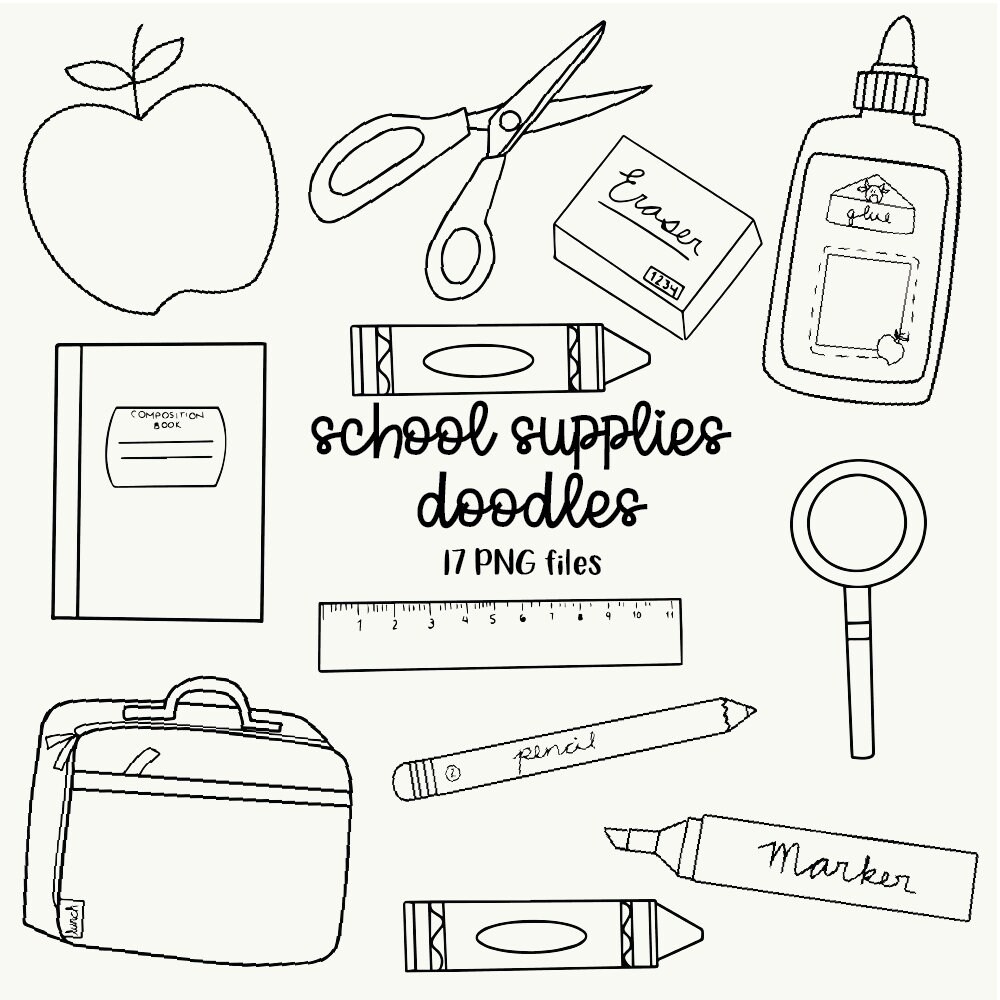 Eraser
1234
glue
COMPOSITION
BOOK
school supplies
doodles
17 PNG files
1 2 3 4 5 6 7 8 9 10 11
pencil
2
Marker
lunch